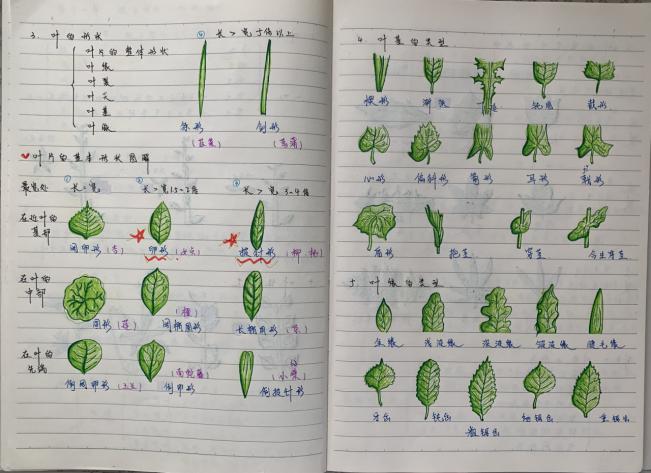 3. 叶的形状
叶片的整体形状
叶缘
叶裂
叶尖
叶基
叶脉
④ 长＞宽5倍以上
条形 剑形
(韭菜) (菖蒲)
叶片的基本形状图解
最宽处 ① 长≈宽 ② 长＞宽1.5-2倍 ③ 长＞宽3-4倍
在近叶的基部
阔卵形(杏) 卵形(女贞) 披针形(柳 桃)
在叶的中部
圆形(莲) 阔椭圆形(橙) 长椭圆形
在叶的先端
倒阔卵形(玉兰) 倒卵形(南蛇藤) 倒披针形(小檗)
4. 叶基的类型
楔形 渐狭 下延 钝圆 截形
心形 偏斜形 箭形 耳形 戟形
盾形 抱茎 穿茎 合生穿茎
5 叶缘的类型
全缘 浅波缘 深波缘 皱波缘 睫毛缘
牙齿 锯齿 细锯齿 重锯齿